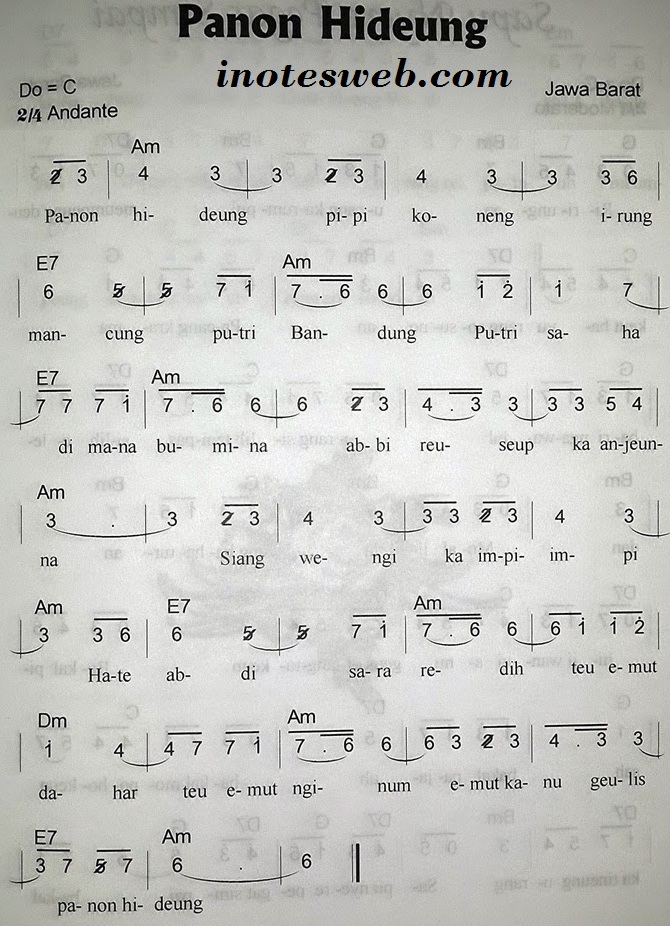 Panon Hideung
inotesweb.com
Do = C
Jawa Barat
2/4 Andante
Am
2̸ 3 | 4 3 | 3 2̸ 3 | 4 3 | 3 3 6
Pa-non hi- deung pi- pi ko- neng i- rung
E7 Am
| 6 5̸ | 5̸ 7 1̇ | 7 . 6 6 | 6 1̇ 2̇ | 1̇ 7
man- cung pu-tri Ban- dung Pu-tri sa- ha
E7 Am
| 7 7 7 1̇ | 7 . 6 6 | 6 2̸ 3 | 4 . 3 3 | 3 3 5 4
di ma-na bu- mi- na ab- bi reu- seup ka an-jeun-
Am
| 3 . | 3 2̸ 3 | 4 3 | 3 3 2̸ 3 | 4 3
na Siang we- ngi ka im-pi- im- pi
Am E7 Am
| 3 3 6 | 6 5̸ | 5̸ 7 1̇ | 7 . 6 6 | 6 1̇ 1̇ 2̇
Ha-te ab- di sa- ra re- dih teu e- mut
Dm Am
| 1̇ 4 | 4 7 7 1̇ | 7 . 6 6 | 6 3 2̸ 3 | 4 . 3 3
da- har teu e- mut ngi- num e- mut ka- nu geu- lis
E7 Am
| 3 7 5̸ 7 | 6 . | 6 ||
pa- non hi- deung